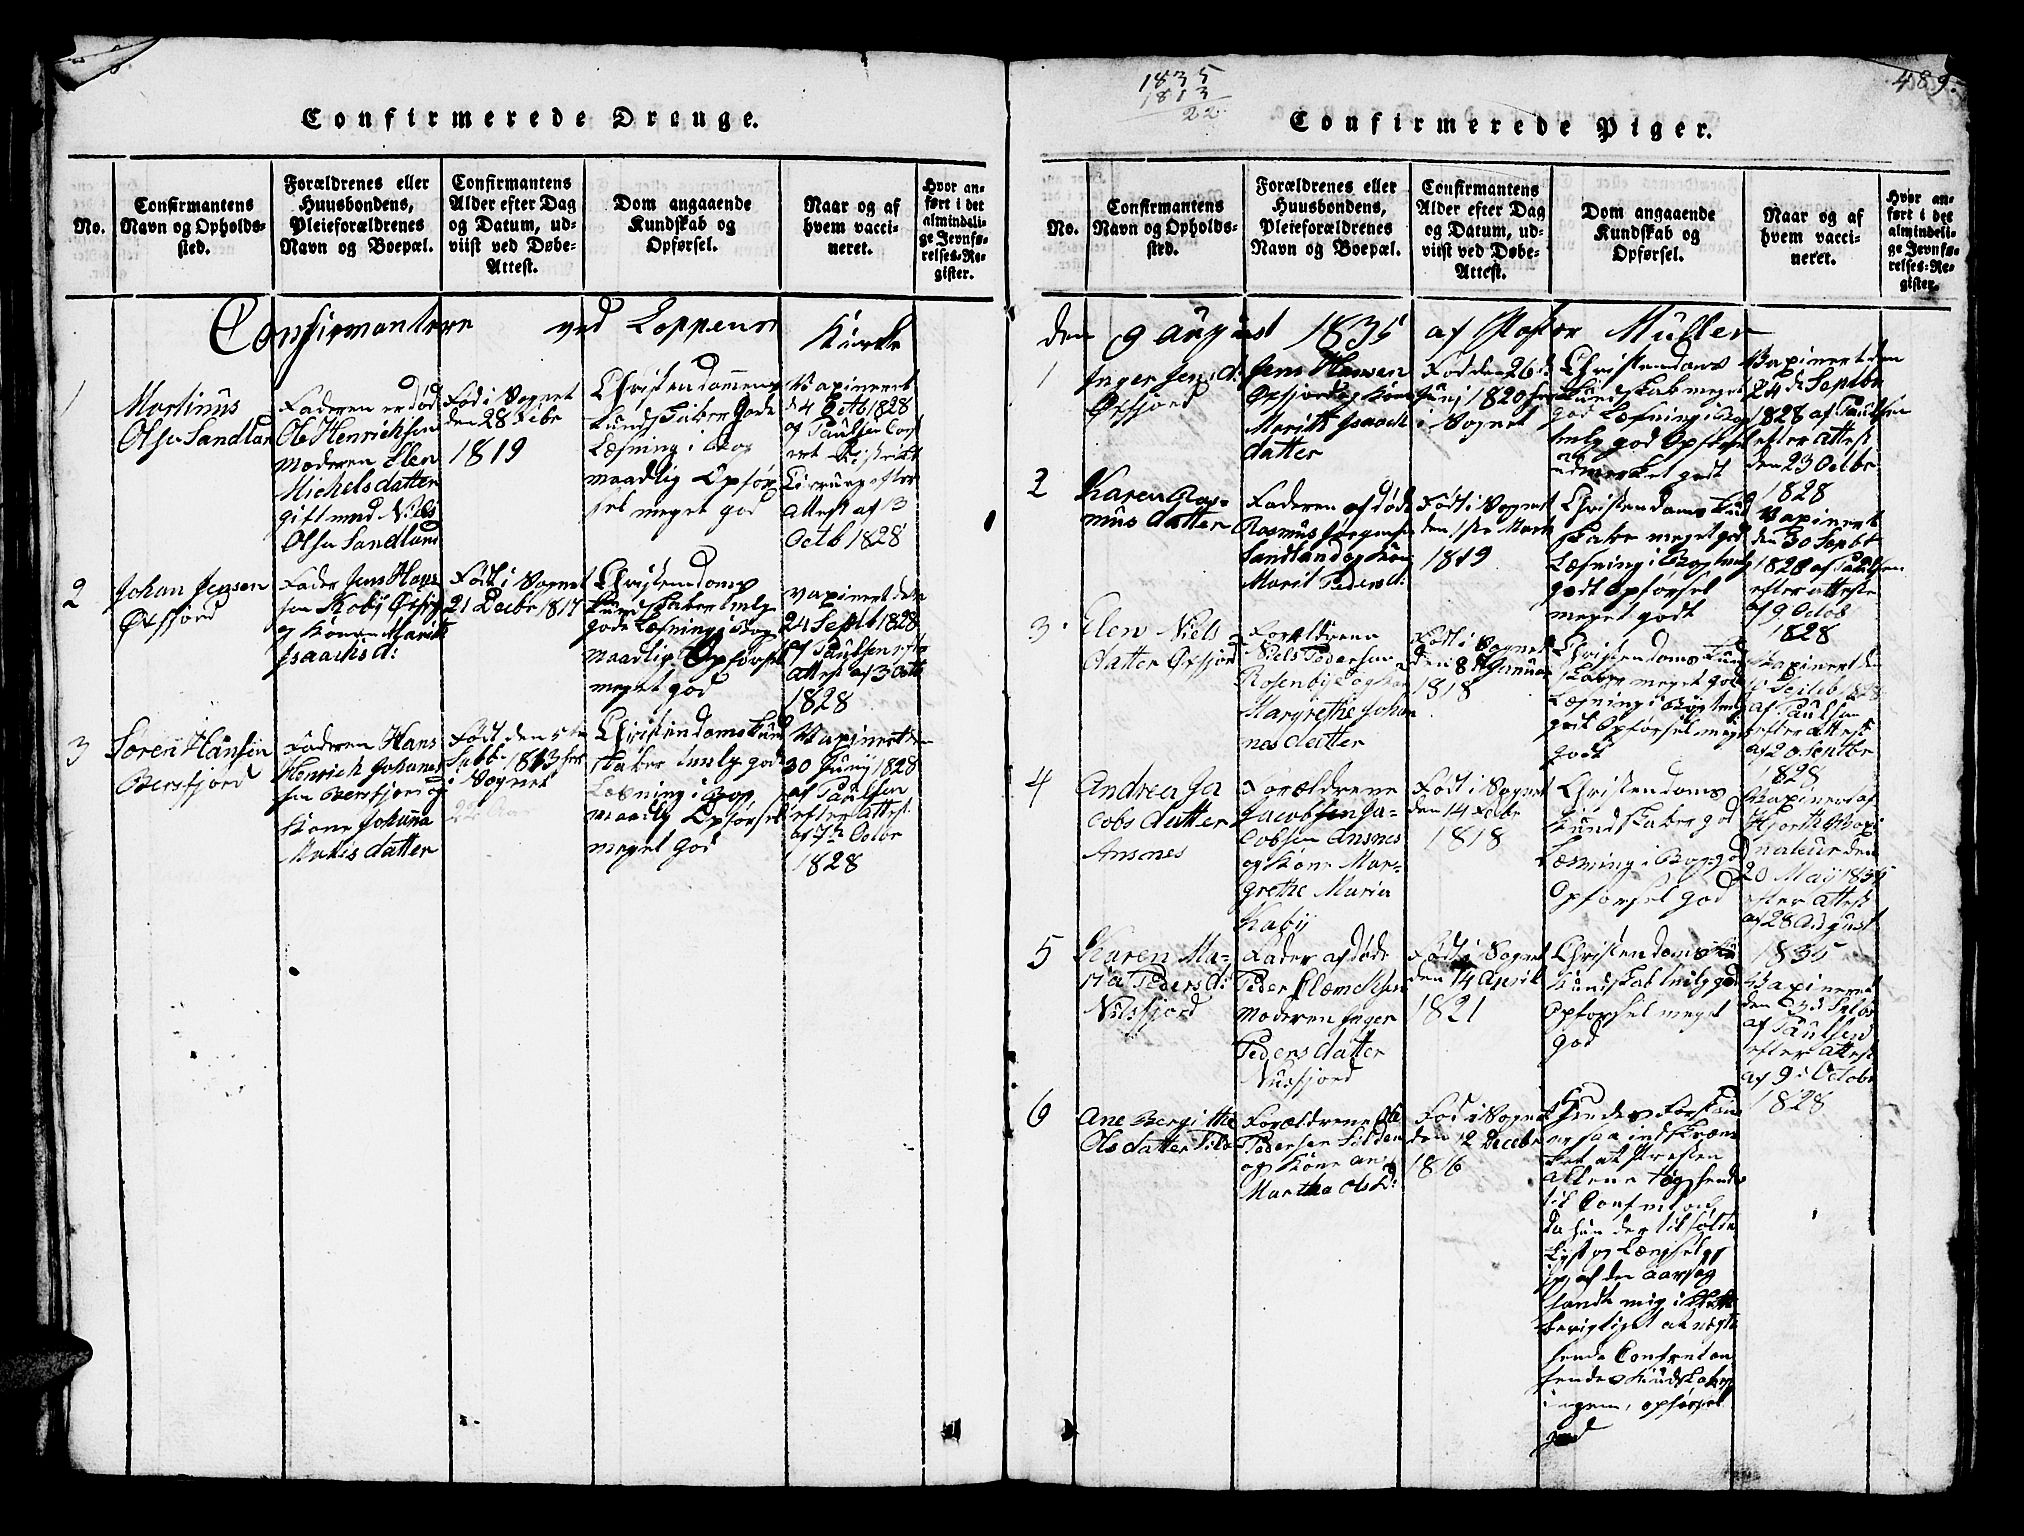 Confirmerede Drenge.
No.
Confirmantens
Navn og Opholds-
sted.
Forældrenes eller
Huusbondens,
Pleieforældrenes
Navn og Boepæl.
Confirmantens
Alder efter Dag
og Datum, ud-
viist ved Døbe-
Attest.
Dom angaaende
Kundskab og
Opførsel.
Naar og af
hvem vacci-
neret.
Hvor an-
ført i det
almindeli-
ge Jevnfø-
relses-Re-
gister.
Confirmanterne ved Loppens Kirke
1
Martinus
Olsen Sandland
Faderen er død
Ole Henrichsen
moderen Elen
Michelsdatter
gift med Niels
Olsen Sandland
Fød i Sognet
den 28 Febr
1819
Christendommens
Kundskaber gode
Læsning i Bog
maadlig Opfør-
sel meget god
Vaxineret
d 4 Octb 1828
af Paulsen
attest af 13
Octb 1828
2
Johan Jensen
Øxfjord
Fader Jens Han-
sen
og Konen Marit
Isaachsd:
Født i Sognet
21 Decbr 1817
Christendoms
Kundskaber temlig
gode Læsning i Bog
maadlig Opførsel
meget god
vaxineret den
24 Septb 1828
af Paulsen efter
attest af 3 Octb
1828
3
Søren Hansen
Bersfjord
Faderen Hans
Henrich Johanne-
sen Bersfjord og
Kone Johanna
datter
Født den 5te
Febr 1813 her
i Sognet
22 Aar
Christendoms Kund
skaber temlig gode
Læsning i Bog
maadlig Opførsel
meget god
Vaxineret den
30 Junij 1828
af Paulsen
efter attest
af 7de Octbr
1828
1835
1813
22
489.
Confirmerede Piger.
No.
Confirmantens
Navn og Opholds-
sted.
Forældrenes eller
Huusbondens,
Pleieforældrenes
Navn og Boepæl.
Confirmantens
Alder efter Dag
og Datum, ud-
viist ved Døbe-
Attest.
Dom angaaende
Kundskab og
Opførsel.
Naar og af
hvem vacci-
neret.
Hvor an-
ført i det
almindeli-
ge Jevnfø-
relses-Re-
gister.
den 9 August 1835 af Pastor Müller
1
Inger Jensd:
Øxfjord
Jens Hansen
Øxfjord og Kone
Marith Isaach
datter
Fød den 26 d:
Junj 1820 her
i Sognet
Christendoms
Kundskab meget
god Læsning i Bog
temlig god Opførsel
udmerket godt
Vaxineret den
24 d Septbr
1828 af Paulsen
efter attest
den 23 Octbr
1828
2
Karen Ras-
mus datter
Faderen afdøde
Rasmus Jørgensen
Sandland og Kone
Marit Peders d:
Født i Sognet
den 1ste Mart
1819
Christendoms Kund
skaber meget god
Læsning i Bog temlig
godt Opførsel
meget godt
Vaxineret
den 30 Septb
1828 af Paulsen
efter atteste
af 9 Octob
1828
3
Elen Niels
datter Øxfjord
Forældrene
Niels Pedersen
og Kone
Margrethe Johan
nes datter
Født i Sognet
den 8de Januar
1818
Christendoms Kund
skaber meget god
Læsning i Bog temlig
godt Opførsel meget
godt
Vaxineret den
Septeb 1828
af Paulsen
efter attest
af 20 Septbr
1828
4
Andrea Ja
cobs datter
Ansnes
Forældrene
Jacobsen Ja-
cobsen Ansnes
og Kone Mar-
grethe Maria
Kabij
Født i Sognet
den 14 Febr
1818
Christendoms
Kundskaber god
Læsning i Bog god
Opførsel god
Vaxineret af
Hjorth
nateur den
20 Maij 1835
efter attest
af 28 August
1835
5
Karen Ma-
ria Pedersd:
Nusfjord
Fader afdøde
Peder Clemetsen
moderen Inger
Peders datter
Nusfjord
Født i Sognet
den 14 April
1821
Christendoms
Kundskab temlig god
Opførsel meget
god
Vaxineret
den
af Paulsen
efter attest
af 9de Octobr
1828
6
Ane Bergithe
Olsdatter
Forældrene Ole
Pedersen
og Kone Ane
Martha Olsd:
Fød i Sognet
den 12 Decebr
1816
Hendes Forstand
er saa indskræn
ket at Præsten
allene tog hende
til Confirmation,
da hun der til følte
Lyst og Længsel
af den aarsag
fandt mig i
berigtiget at negte
hende
hendes Kundskaber
ingen, opførsel
god